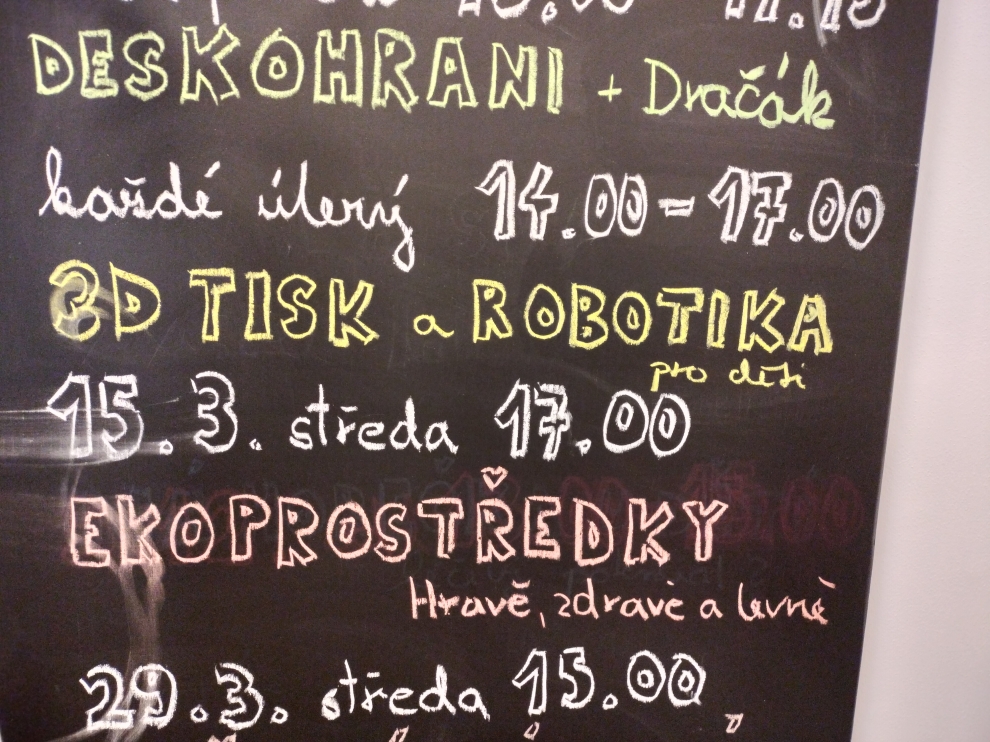 DESKOHRANI + Dračák
každé úterý 14.00-17.00
3D TISK a ROBOTIKA
pro děti
15.3. středa 17.00
EKOPROSTŘEDKY
Hravě, zdravě a levně
29.3. středa 15.00